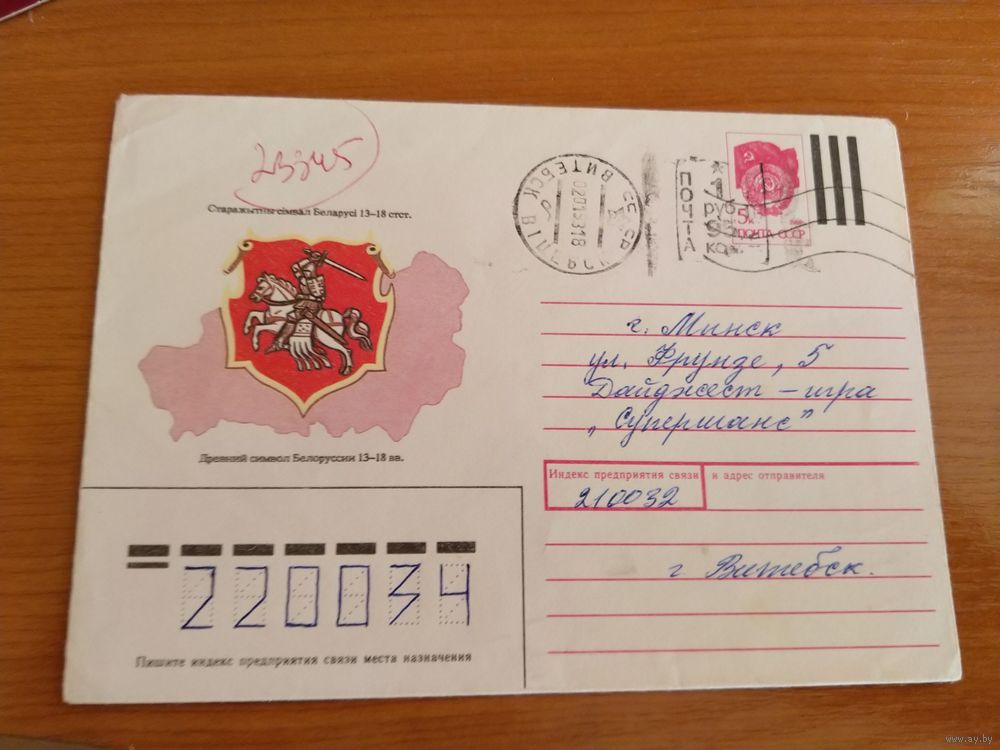 23345
Старажытны сімвал Беларусі 13–18 стст.
Древний символ Белоруссии 13–18 вв.
ВИТЕБСК
ВІЦЕБСК
ПОЧТА
1
руб
95
ко
5к
ПОЧТА СССР
г. Минск
ул. Фрунзе, 5
Дайджест – игра
„Супершанс"
Индекс предприятия связи и адрес отправителя
210032
г Витебск.
220034
Пишите индекс предприятия связи места назначения
www.ay.by